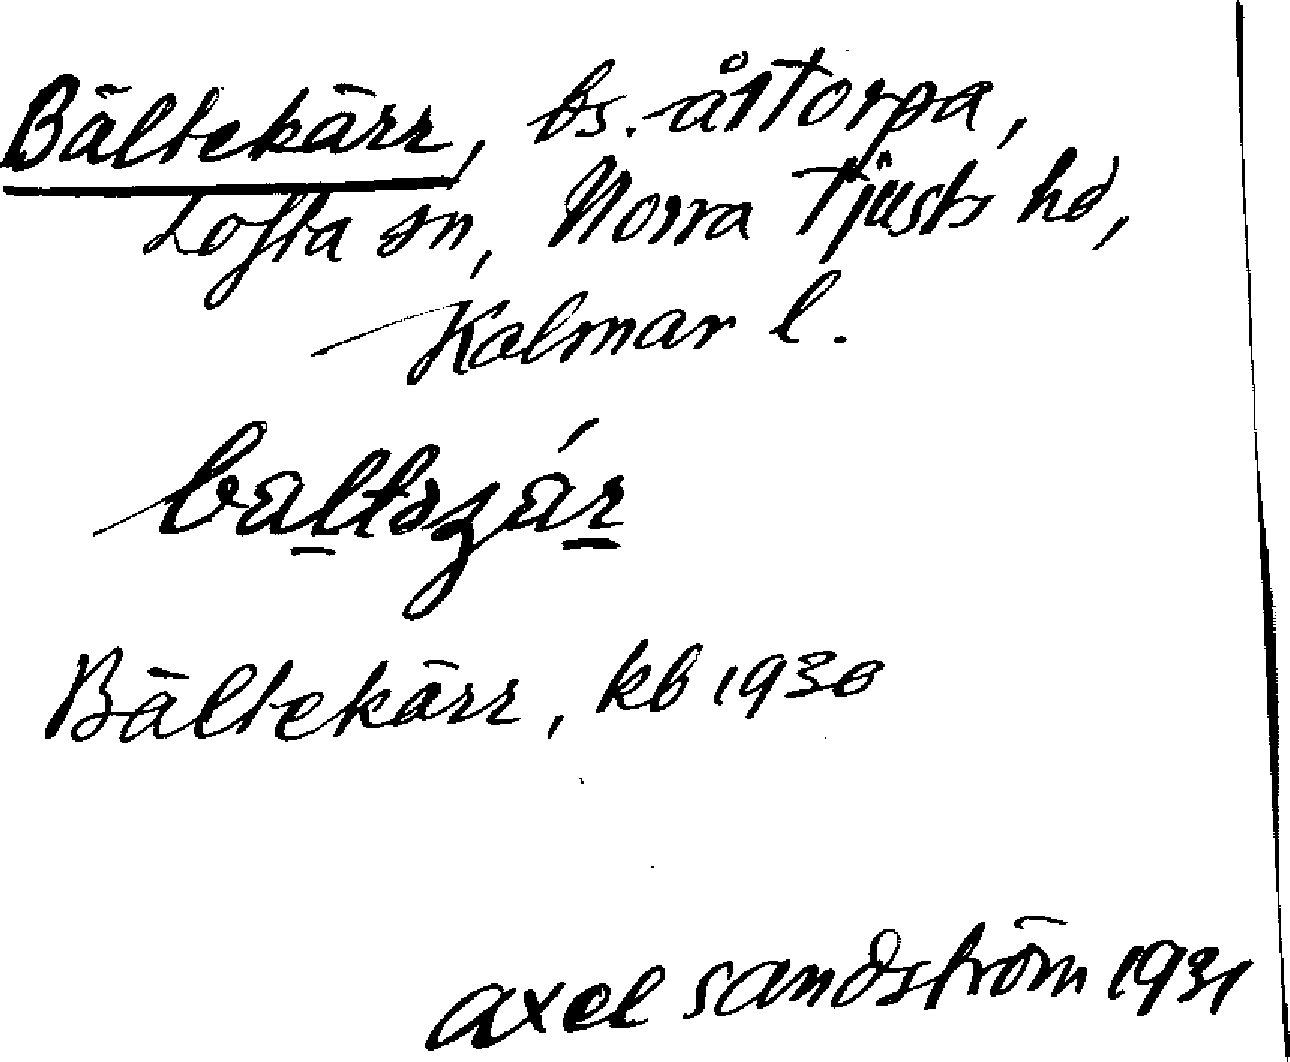 Bältekärr, bs. åttorpa,
Lofta sn, Norra Tjusts hd,
Kalmar l.
Bältekärr, kb 1930
axel sandström 1931